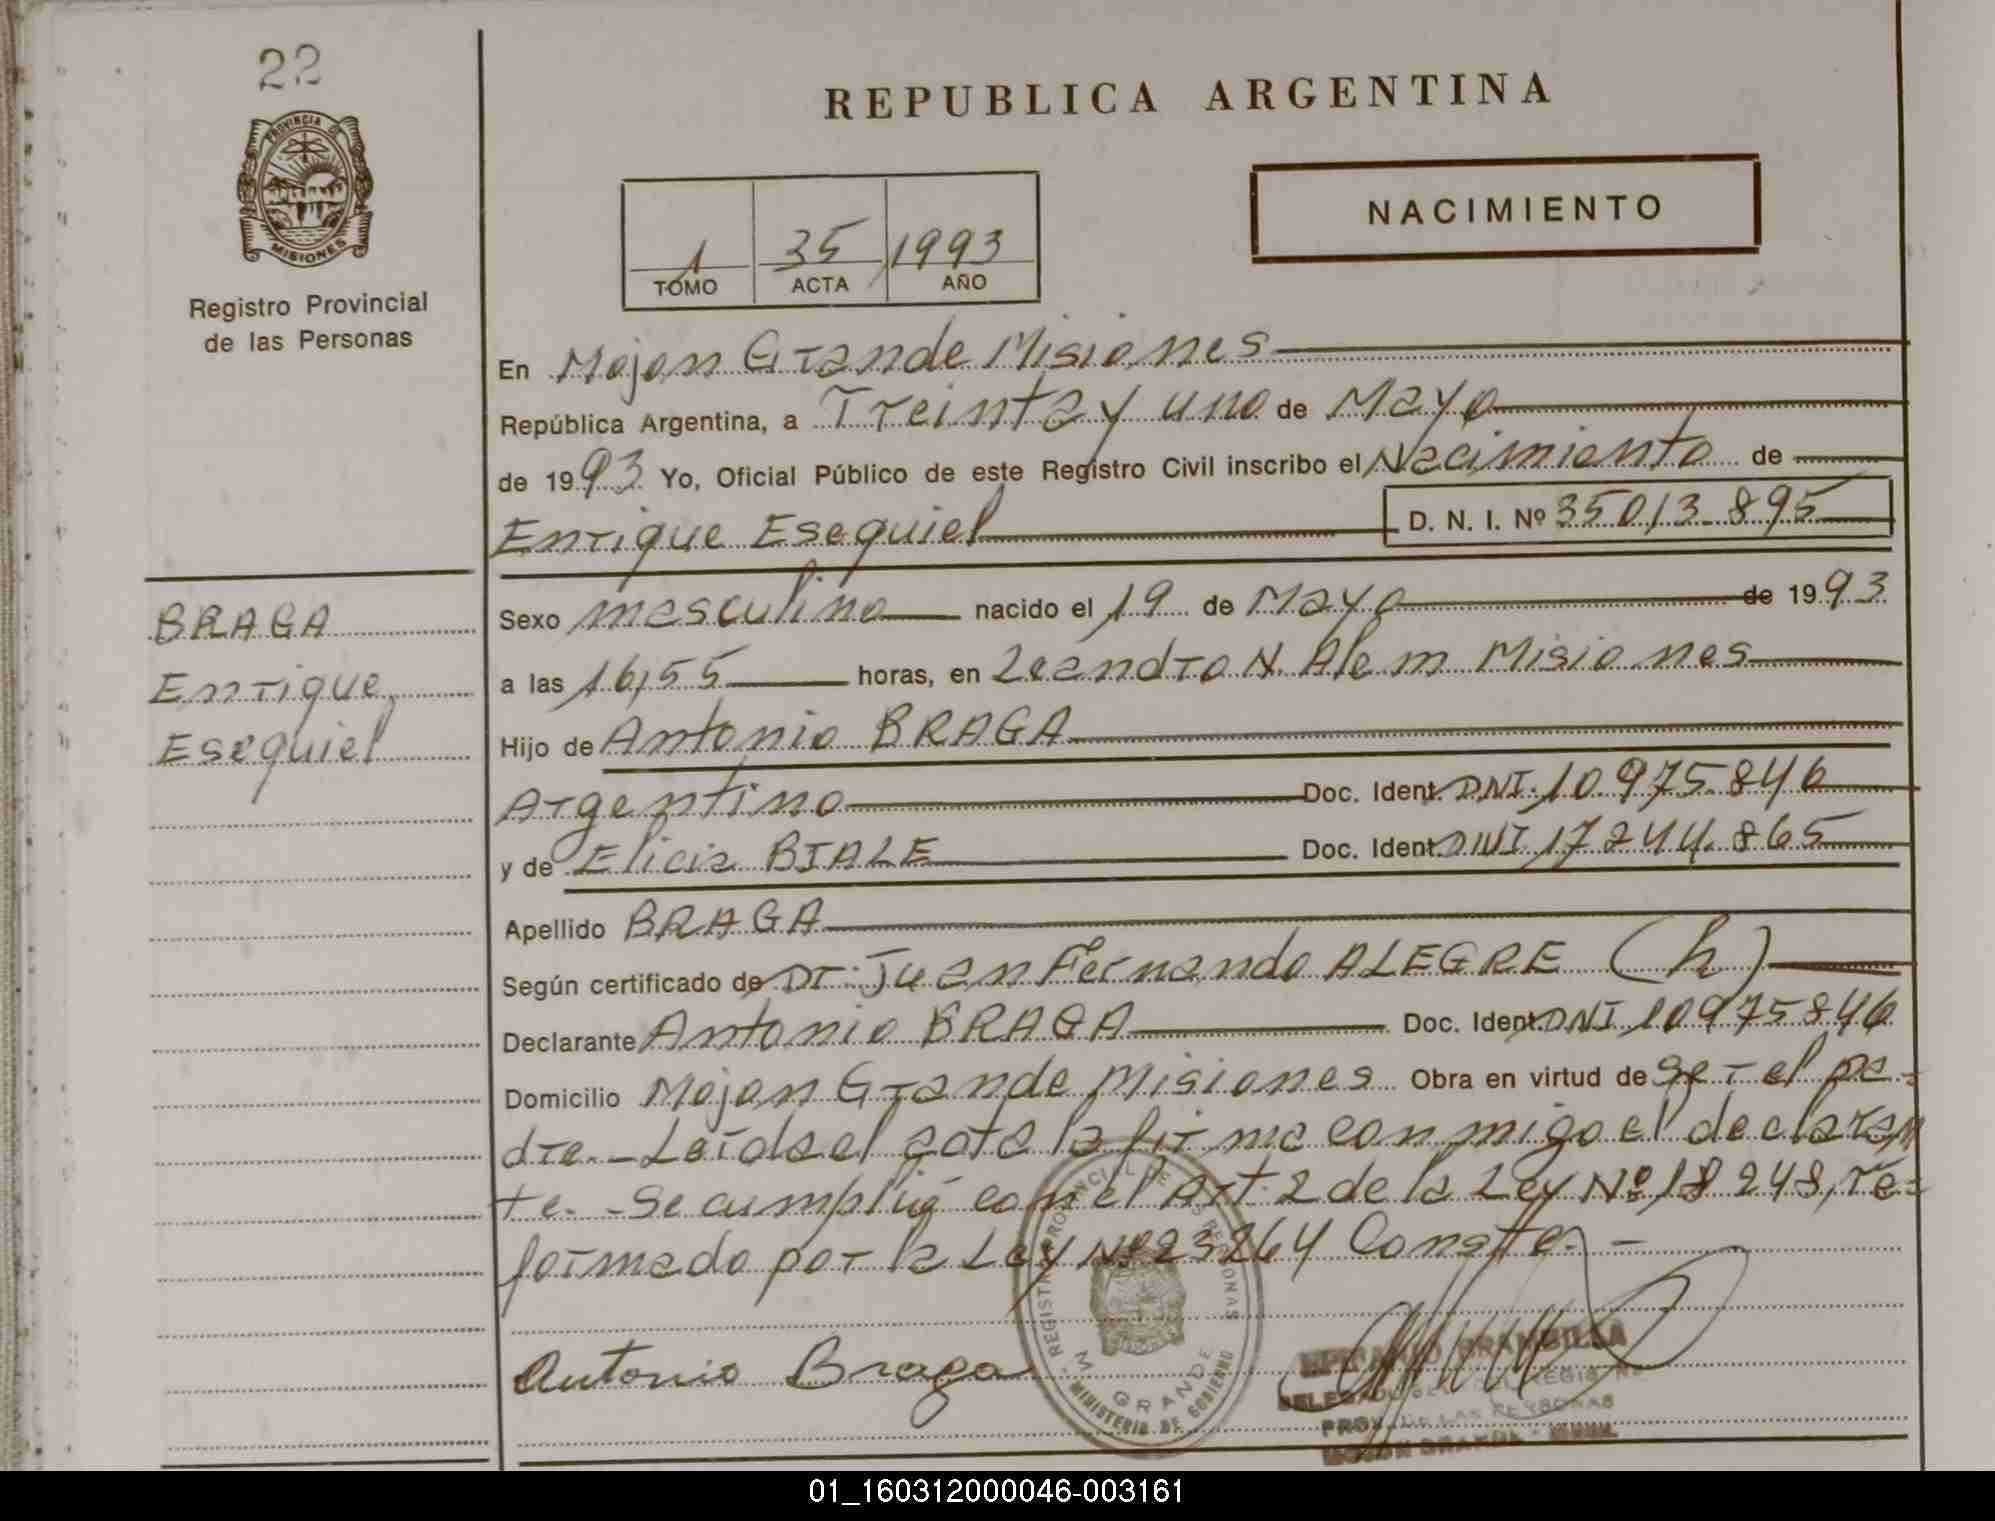 22
PROVINCIA DE
MISIONES
Registro Provincial
de las Personas
REPUBLICA ARGENTINA
NACIMIENTO
1 35 1993
TOMO ACTA AÑO
En Mojon Grande Misiones
República Argentina, a Treinta y uno de Mayo
de 1993 Yo, Oficial Público de este Registro Civil inscribo el Nacimiento de
Enrique Esequiel D. N. I. Nº 35013.895
BRAGA
Enrique
Esequiel
Sexo masculino nacido el 19 de Mayo de 1993
a las 16,55 horas, en Leandro N. Alem Misiones
Hijo de Antonio BRAGA
Argentino Doc. Ident. DNI. 10.975.846
y de Elicia BIALE Doc. Ident. DNI 17244.865
Apellido BRAGA
Según certificado de Dr. Juan Fernando ALEGRE (h)
Declarante Antonio BRAGA Doc. Ident. DNI 10975846
Domicilio Mojon Grande Misiones Obra en virtud de ser el pa-
dre.- Leida el acta la firma conmigo el declaran
te.- Se cumplió con el Art. 2 de la Ley Nº 18248, re-
formado por la Ley Nº 23264 Conste.-
Antonio Braga
REGISTRO PROVINCIAL DE LAS PERSONAS
M. GRANDE
MINISTERIO DE GOBIERNO
BRAMBILLA
DELEGADO DEL REGISTRO
PROV. DE LAS PERSONAS
MOJON GRANDE
01_160312000046-003161